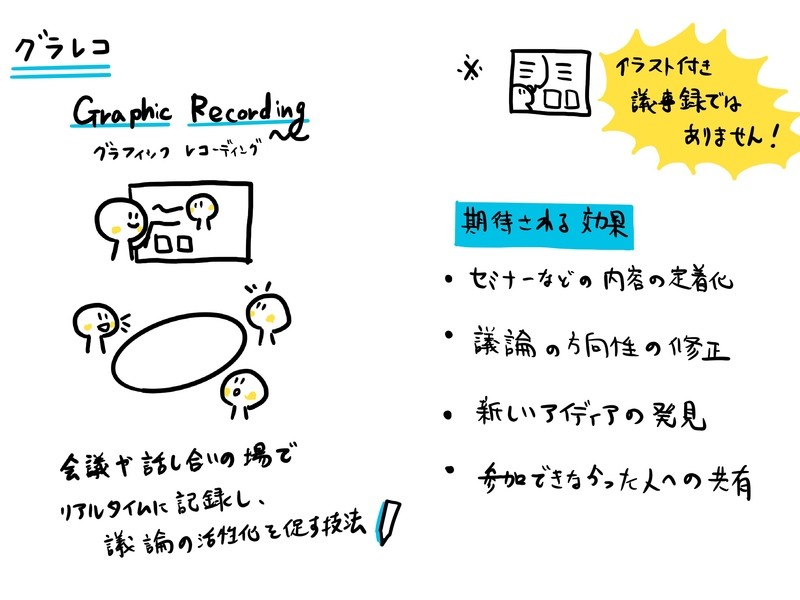 グラレコ
Graphic Recording
グラフィック レコーディング
会議や話し合いの場で
リアルタイムに記録し、
議論の活性化を促す技法
※
イラスト付き
議事録では
ありません！
期待される効果
・セミナーなどの内容の定着化
・議論の方向性の修正
・新しいアイディアの発見
・参加できなかった人への共有